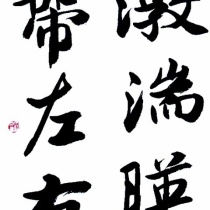 激湍暎
帶左右